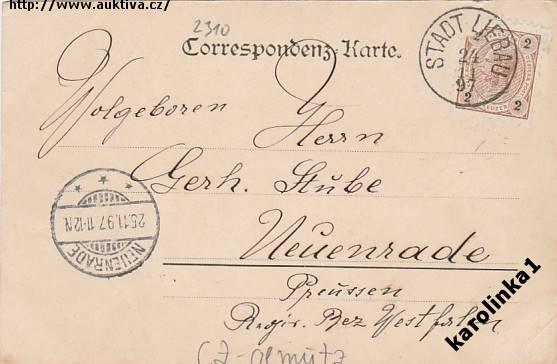 http://www.auktiva.cz/
2310
Correspondenz-Karte.
STADT LIEBAU
24
11
97
2
2
2
Wolgeboren
Herrn
Gerh. Stube
Neuenrade
Preussen
Regir. Bez Westfalen
NEUENRADE
25.11.97.11-12N.
karolinka1